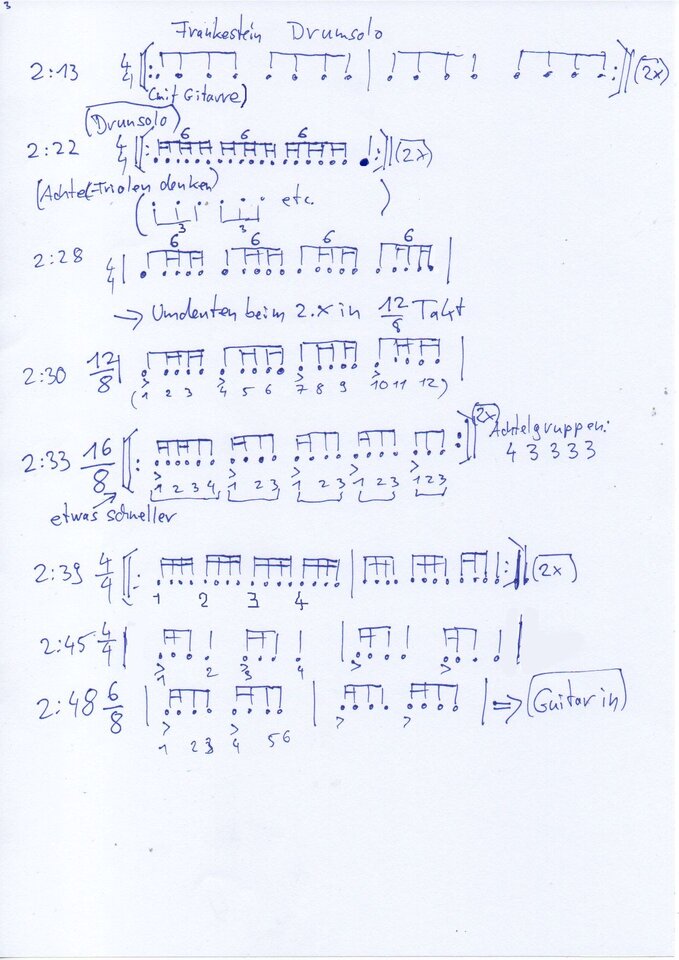 3
Frankestein Drumsolo
2:13 4/4 (2x)
(mit Gitarre)
Drumsolo
2:22 4/4 6 6 6 (2x)
(Achtel-Triolen denken)
( 3 3 etc. )
2:28 4/4 6 6 6 6
→ Umdenten beim 2.x in 12/8 Takt
2:30 12/8
( > 1 2 3 > 4 5 6 > 7 8 9 > 10 11 12 )
2x
Achtelgruppen:
2:33 16/8 4 3 3 3 3
> 1 2 3 4 > 1 2 3 > 1 2 3 > 1 2 3 > 1 2 3
etwas schneller
2:39 4/4 (2x)
1 2 3 4
2:45 4/4
> 1 2 > 3 4 > >
2:48 6/8 ⇒ Guitar in
> 1 2 3 > 4 5 6 > >